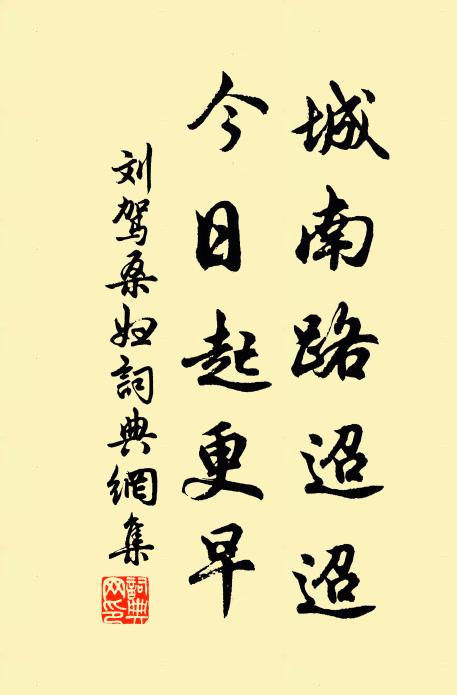 城南路迢迢
今日起更早
刘驾桑妇詞典網集